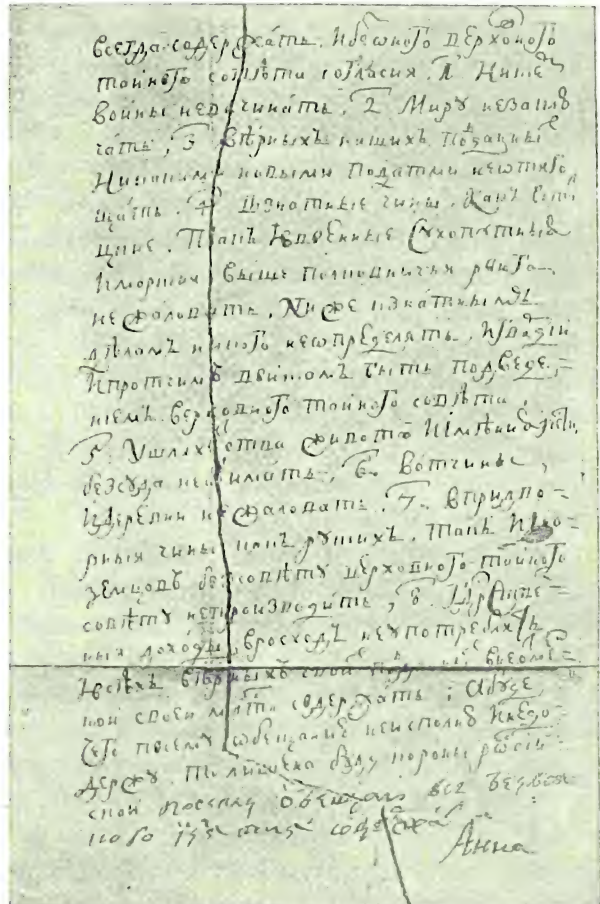 всегда содержать. И без оного верховного
тайного совѣта согласия. 1. Ни с кем
войны невчинать, 2 Миру незаклю
чать, 3 вѣрных наших подданных
Никакими новыми податми неотяго
щать. 4 В знатные чины. Как в ста
цкие. Такъ И военные Сухопутные
И морские выше полковничья ранга
не жаловать, Ниже к знатным
дѣлам никого не определять. И гвардии
И протчим войскам быть под веде=
нием верховного тайного совѣта,
5. У шляхетства живота И имѣния
без суда не отымать, 6. Вотчины,
И деревни не жаловать. 7. в придво=
рныя чины как руских. Такъ Ино
земцовъ без совѣту верховного тайного
совѣту не производить, 8.
ныя доходы в росход не употреблять
И всѣх вѣрных своих подданных в неотме=
ной своей милости содержать; А буде
чего по сему обещанию не исполню И не до
держу. То лишена буду короны россии
ской посему обещаю все без всякого
содержать
Анна